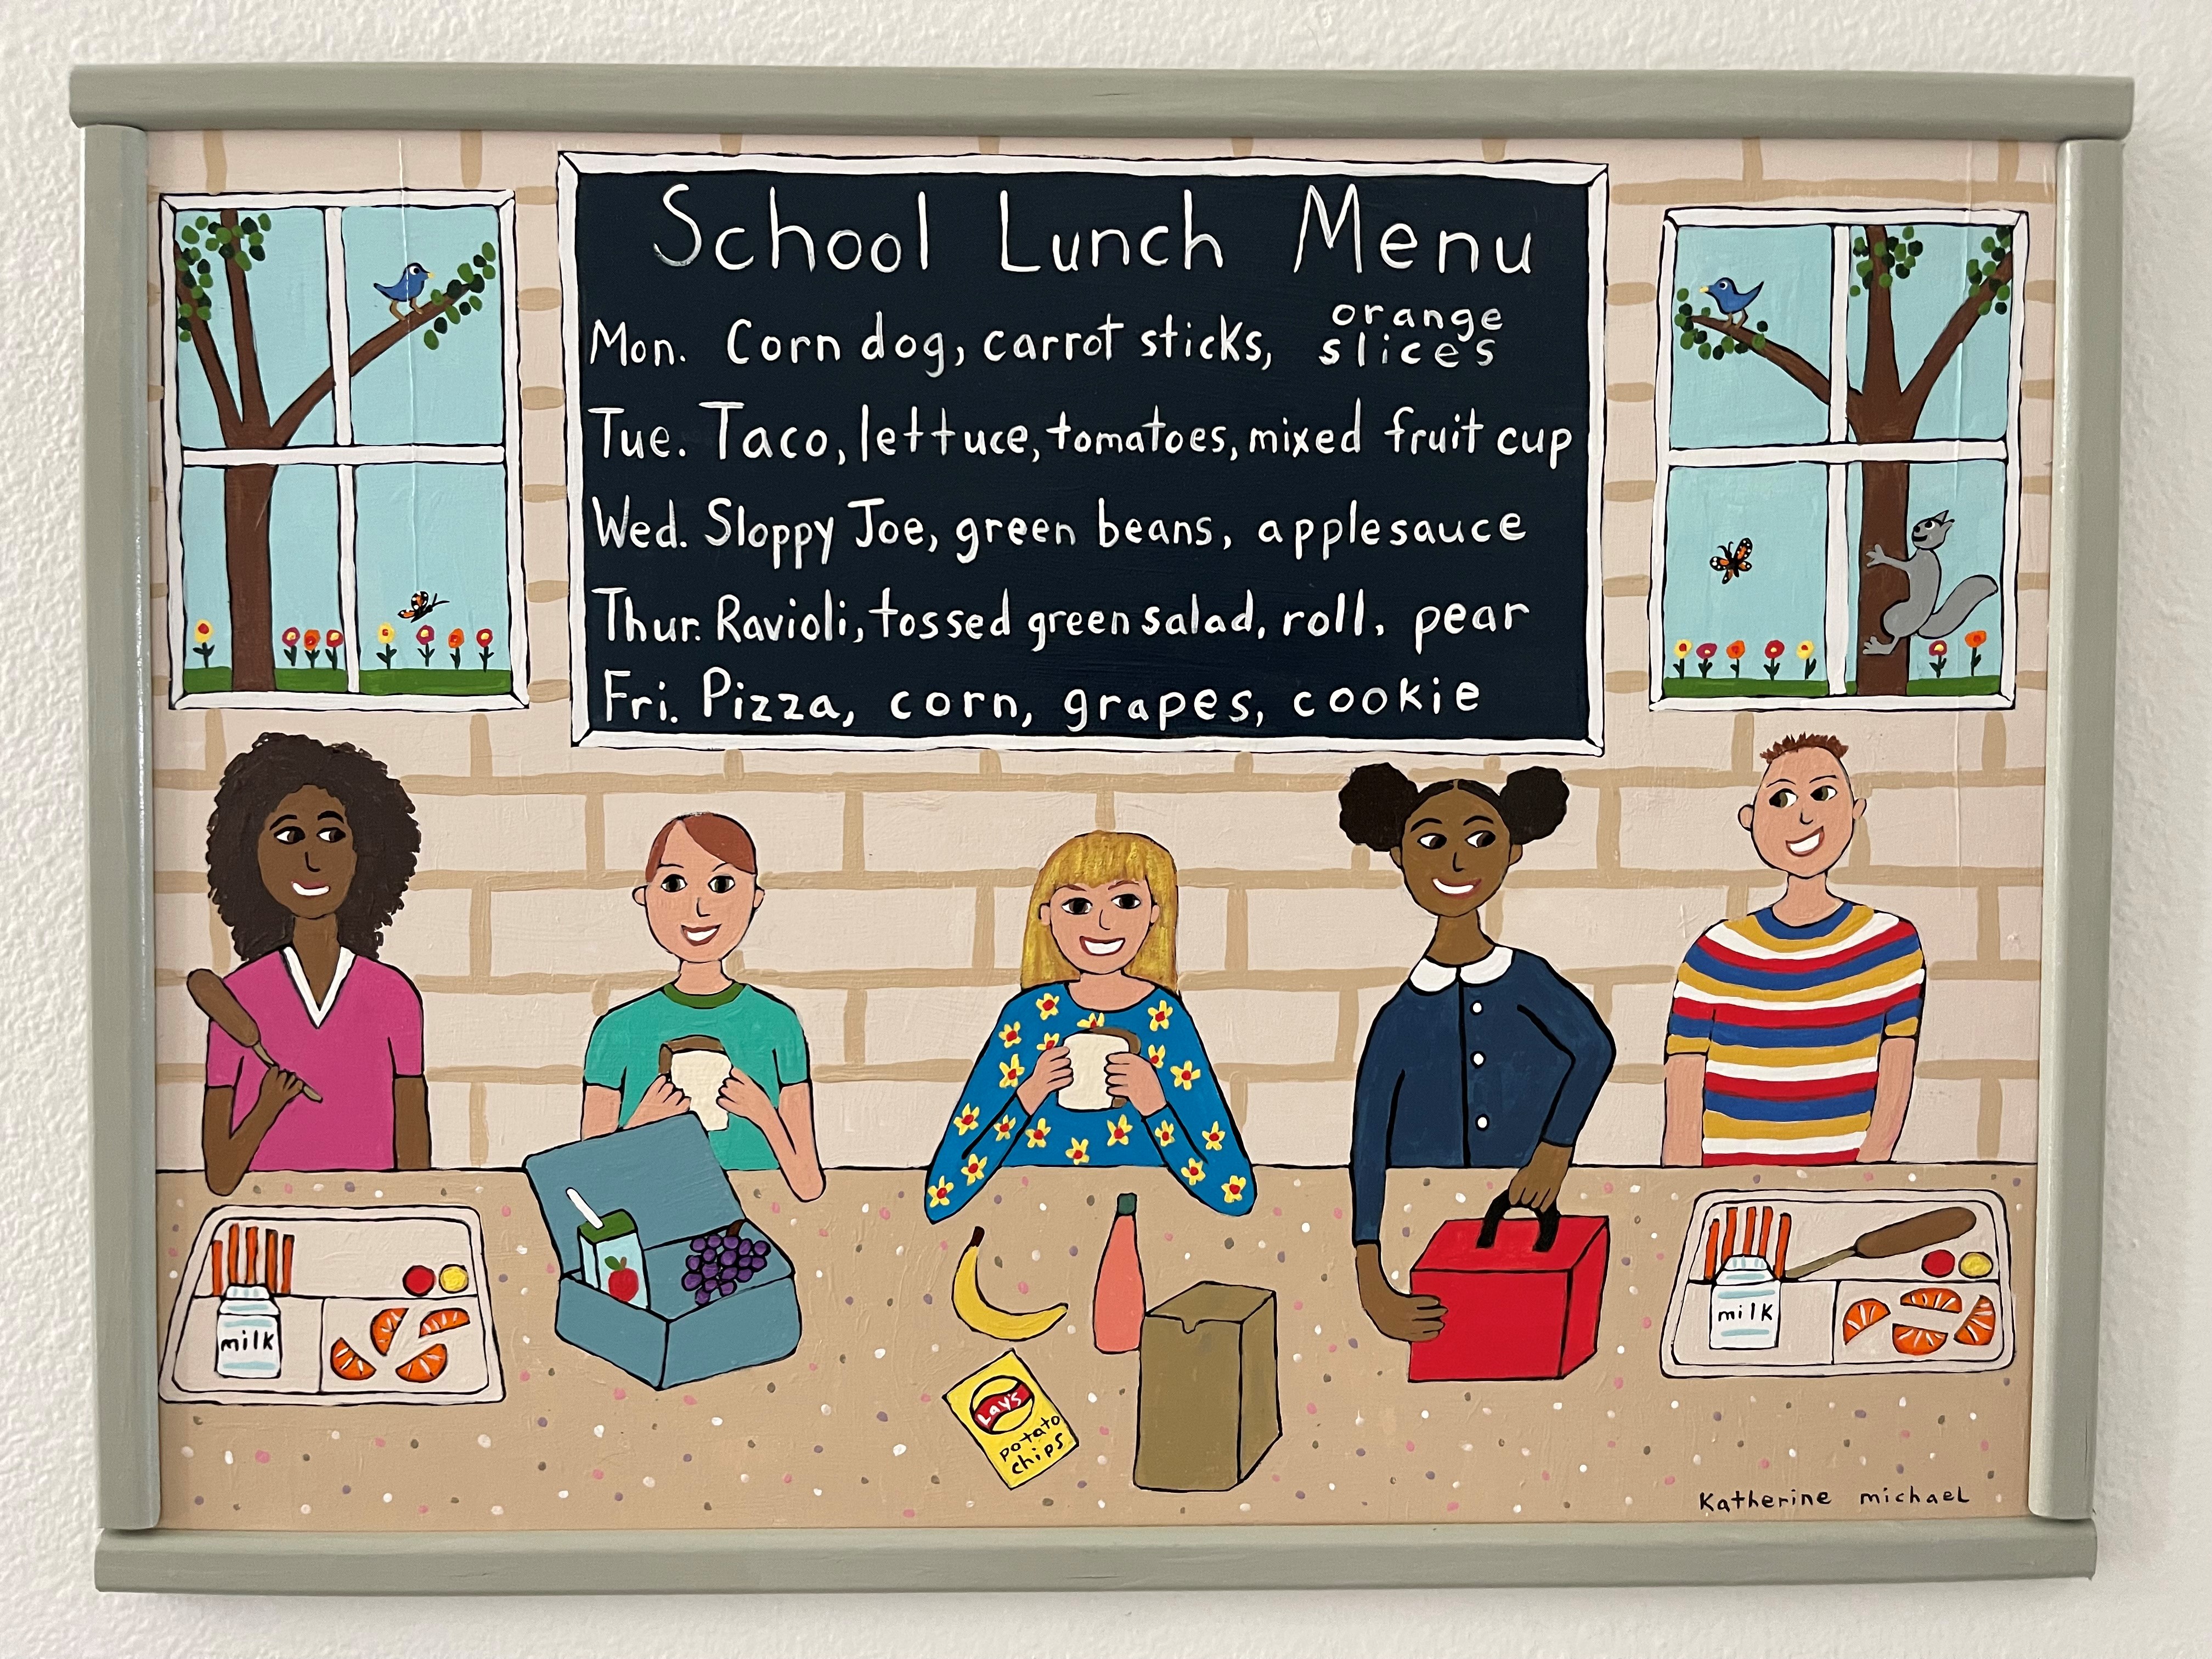 School Lunch Menu
Mon. Corn dog, carrot sticks, orange slices
Tue. Taco, lettuce, tomatoes, mixed fruit cup
Wed. Sloppy Joe, green beans, applesauce
Thur. Ravioli, tossed green salad, roll, pear
Fri. Pizza, corn, grapes, cookie
milk
milk
LAY'S
potato
chips
Katherine michael